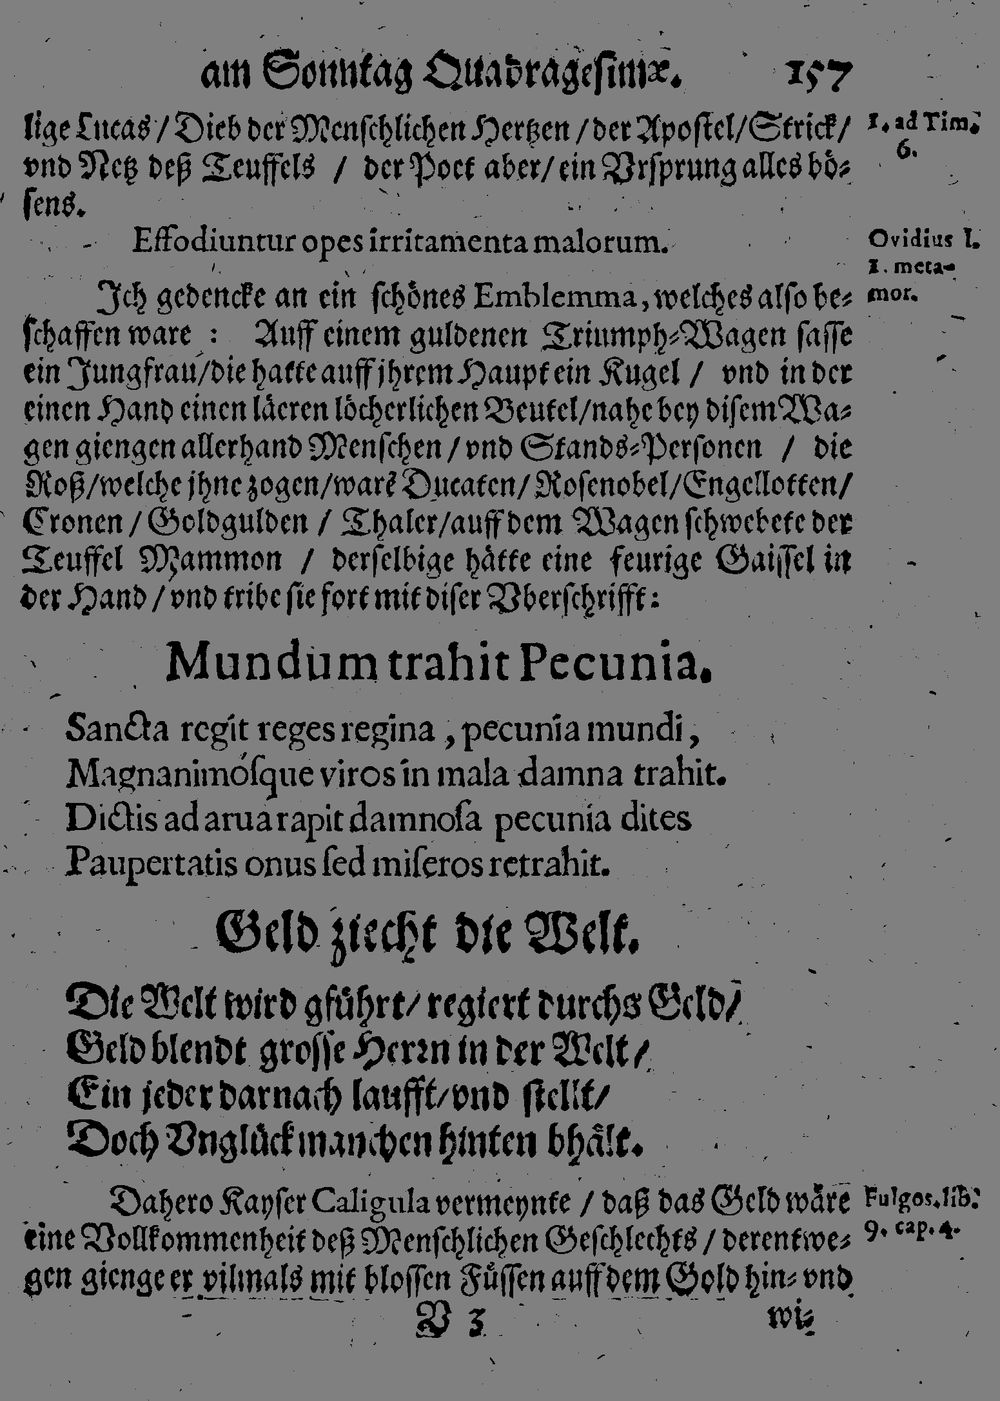 am Sonntag Quadragesimæ. 157
lige Lucas / Dieb der Menschlichen Hertzen / der Apostel / Strick /
vnd Netz deß Teuffels / der Poet aber / ein Vrsprung alles bö-
sens.
1. ad Tim.
6.
Effodiuntur opes irritamenta malorum.
Ovidius l.
1. meta-
mor.
Ich gedencke an ein schönes Emblemma, welches also be-
schaffen ware : Auff einem guldenen Triumph-Wagen sasse
ein Jungfrau / die hatte auff jhrem Haupt ein Kugel / vnd in der
einen Hand einen läeren löcherlichen Beutel / nahe bey disem Wa-
gen giengen allerhand Menschen / vnd Stands-Personen / die
Roß / welche jhne zogen / warē Ducaten / Rosenobel / Engellotten /
Cronen / Goldgulden / Thaler / auff dem Wagen schwebete der
Teuffel Mammon / derselbige hätte eine feurige Gaissel in
der Hand / vnd tribe sie fort mit diser Vberschrifft :
Mundum trahit Pecunia.
Sancta regit reges regina , pecunia mundi ,
Magnanimósque viros in mala damna trahit.
Dictis ad arua rapit damnosa pecunia dites
Paupertatis onus sed miseros retrahit.
Geld ziecht die Welt.
Die Welt wird gführt / regiert durchs Geld /
Geld blendt grosse Herrn in der Welt /
Ein jeder darnach laufft / vnd stellt /
Doch Vnglück manchen hinten bhält.
Dahero Kayser Caligula vermeynte / daß das Geld wäre
eine Vollkommenheit deß Menschlichen Geschlechts / derentwe-
gen gienge er vilmals mit blossen Füssen auff dem Gold hin- vnd
Fulgos. lib.
9. cap. 4.
V 3 wi-